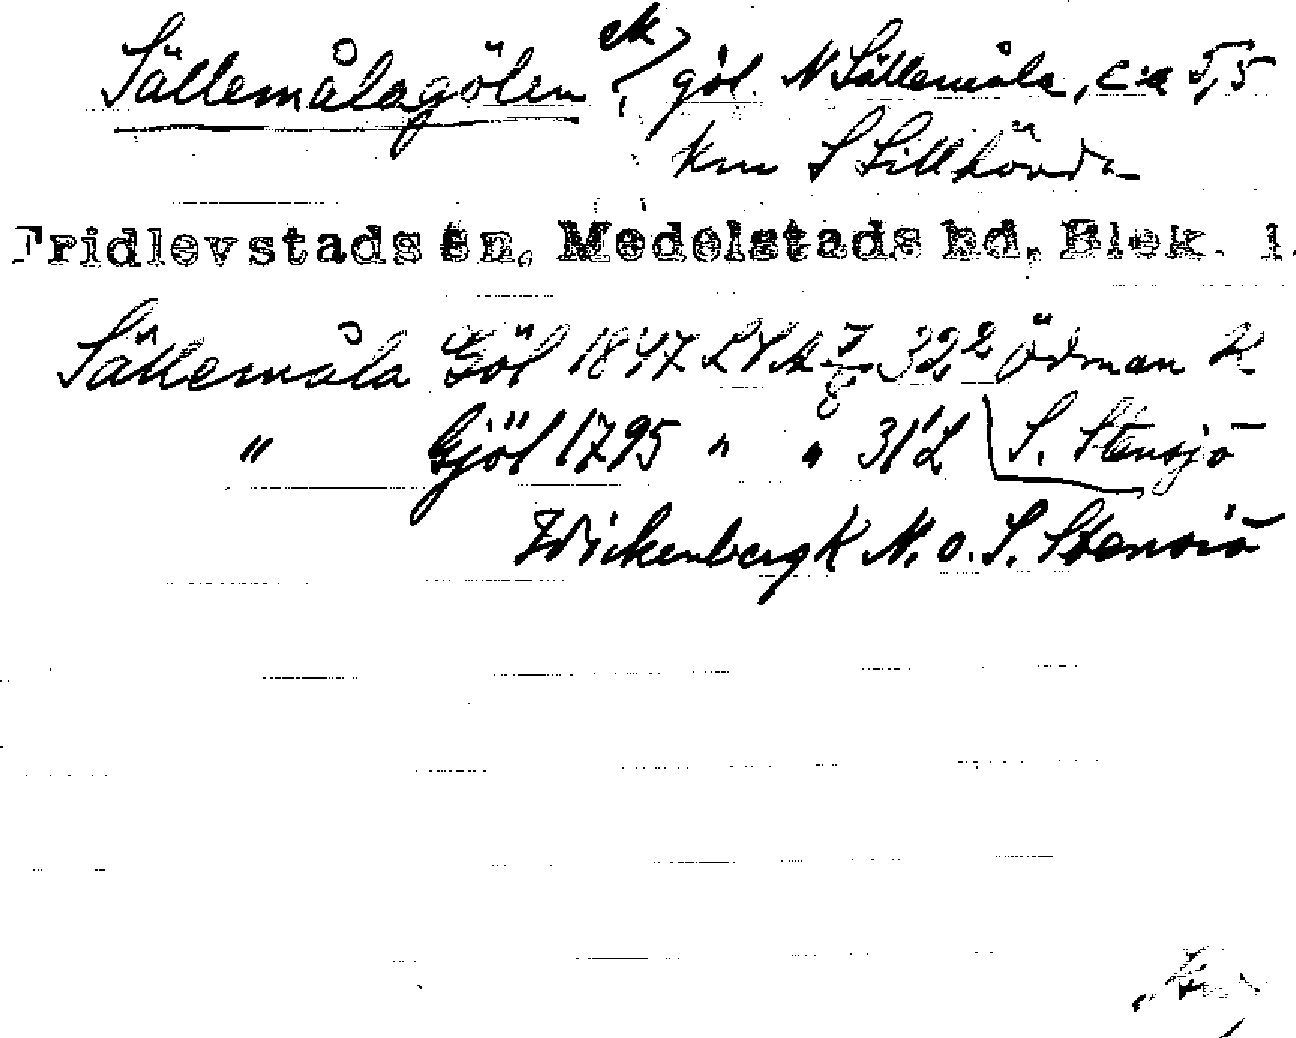 Sällemålagölen ek göl. N Sällemåla, c:a 5,5
km S Sillhövda
Fridlevstads sn, Medelstads hd, Blek. l.
Sällemåla Göl 1847 LVA I/8 32² Ödman K
" Gjöl 1795 " " 31'L S. Stensjö
Wickenberg K N. o. S. Stensjö